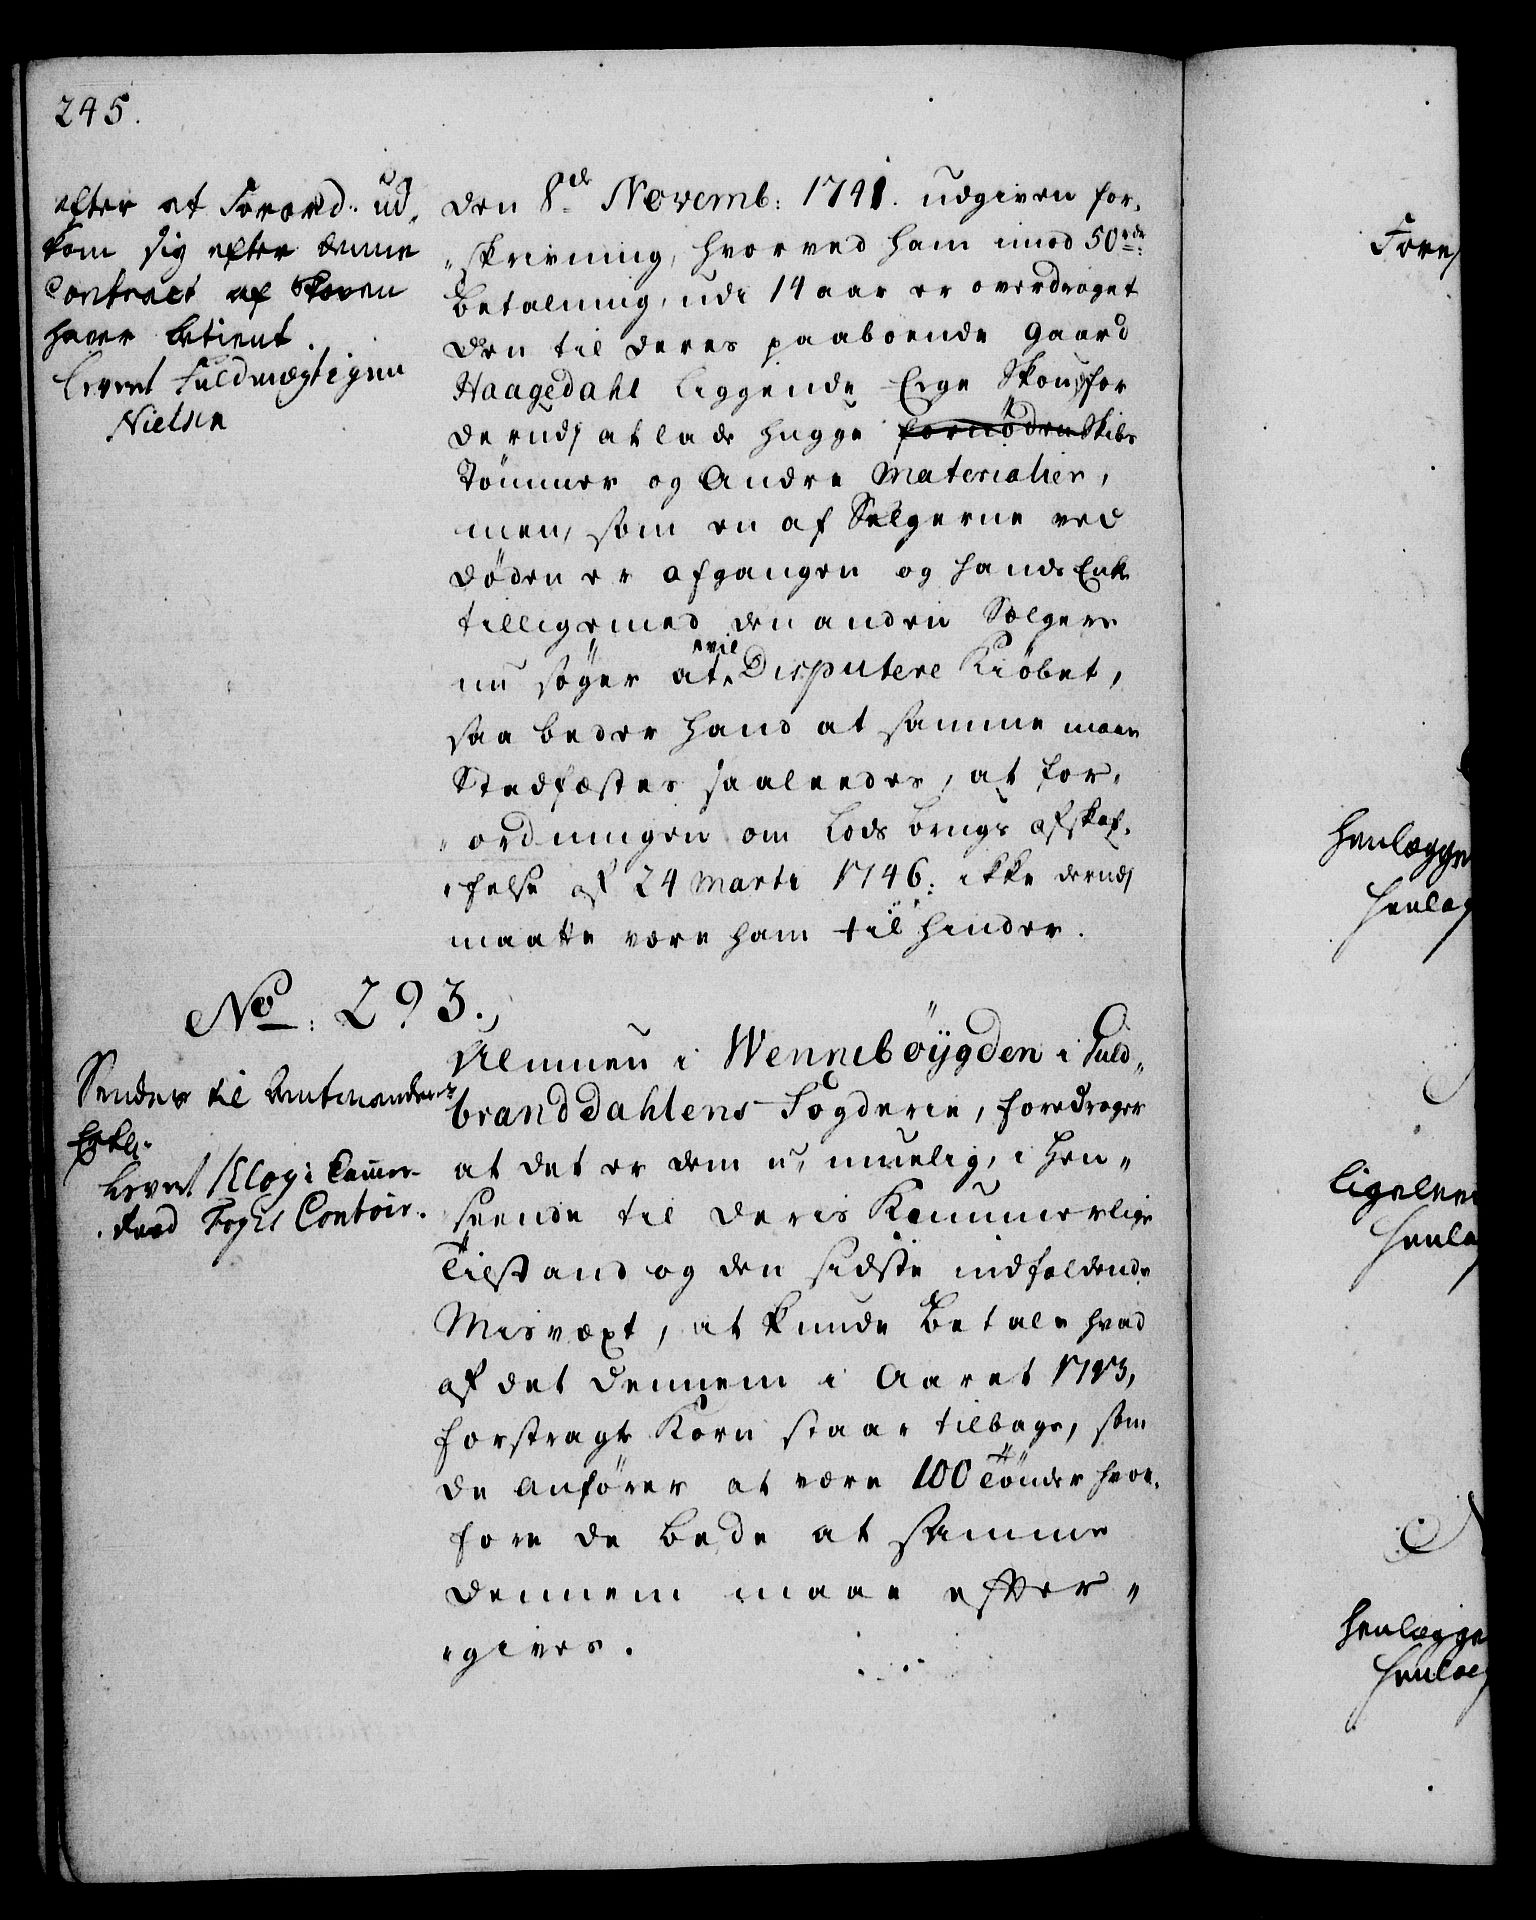 245.
efter at Forord. ud,
kom sig efter denne
Contract af Skoven
haver betient.
Levert Fuldmægtigen
Nielsen
den 8de Novemb: 1741. udgiven for,
„skrivning, hvorved ham imod 50 rdr
Betalning, udi 14 aar er overdraget
den til deres paaboende Gaard
Haagedahl liggende Eige Skoug for
derudj at lade hugge fornøden Skibs
Tømmer og Andre Materialier,
men, som en af Selgerne ved
døden er afgangen og hands Enke
tilligemed den anden Sælgere
nu søger at vil Disputere Kiøbet,
saa beder hand at samme maae
Stedfæstes saaleedes, at for,
„ordningen om Lods brugs afskaf,
„felse af 24 Marti 1746: ikke derudj
maatte være ham til hinder.
No: 293.
Sendes til Amtmandens
Erkl:
Levert Klog i Cammer-
raad Fogts Contoir.
Almuen i Wennebøygden i Guld„
branddahlens Fogderie, foredrager
at det er dem u, muelig, i Hen„
seende til deris Kummerlige
Tilstand og den sidste indfaldende
Misvæxt, at kunde betale hvad
af det dennem i Aaret 1743,
forstragte Korn staar tilbage, som
de anfører at være 100 Tønder hvor,
fore de bede at samme
dennem maae efter„
„gives.
Fore
henlægge
henlag
ligeleed
henla
henlægge
henlæg